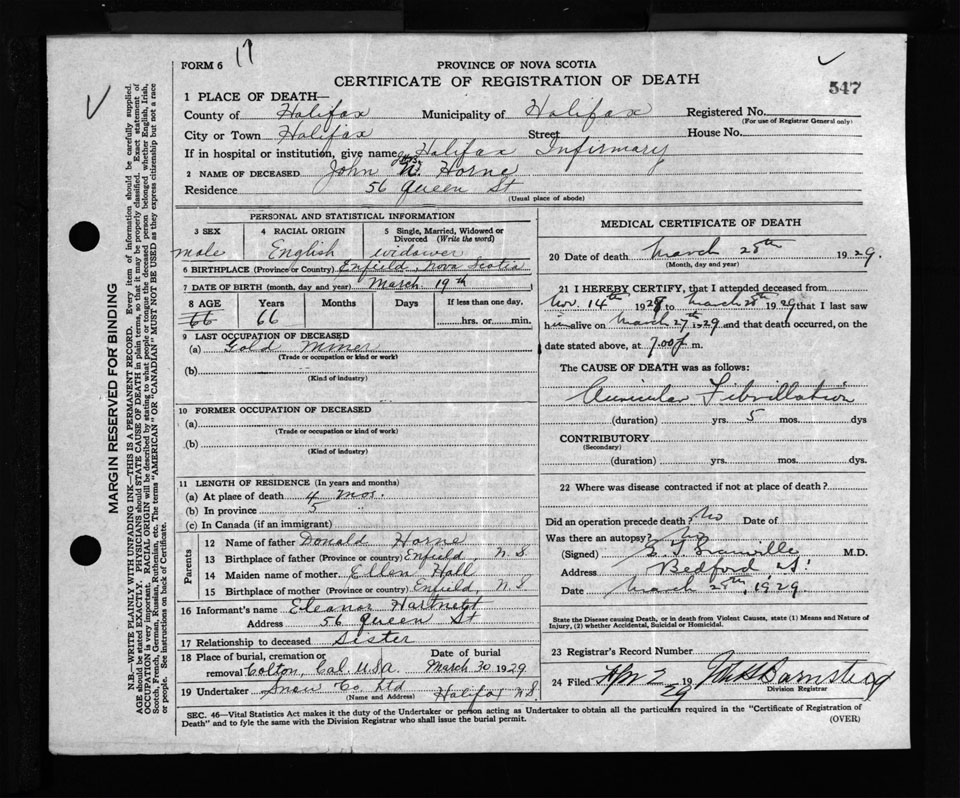 17
FORM 6
PROVINCE OF NOVA SCOTIA
CERTIFICATE OF REGISTRATION OF DEATH
547
1 PLACE OF DEATH—
County of Halifax Municipality of Halifax Registered No.
(For use of Registrar General only)
City or Town Halifax Street House No.
If in hospital or institution, give name Halifax Infirmary
2 NAME OF DECEASED John W. Horne
Residence 56 Queen St
(Usual place of abode)
PERSONAL AND STATISTICAL INFORMATION
3 SEX 4 RACIAL ORIGIN 5 Single, Married, Widowed or Divorced (Write the word)
male English widower
6 BIRTHPLACE (Province or Country) Enfield, Nova Scotia
7 DATE OF BIRTH (month, day and year) March 19th
8 AGE Years Months Days If less than one day,
66 66 hrs. or min.
9 LAST OCCUPATION OF DECEASED
(a) Gold Miner
(Trade or occupation or kind of work)
(b)
(Kind of industry)
10 FORMER OCCUPATION OF DECEASED
(a)
(Trade or occupation or kind of work)
(b)
(Kind of industry)
11 LENGTH OF RESIDENCE (In years and months)
(a) At place of death 4 mos.
(b) In province 5
(c) In Canada (if an immigrant)
Parents
12 Name of father Donald Horne
13 Birthplace of father (Province or country) Enfield, N.S
14 Maiden name of mother Ellen Hall
15 Birthplace of mother (Province or country) Enfield, N.S
16 Informant's name Eleanor Hartnett
Address 56 Queen St
17 Relationship to deceased Sister
18 Place of burial, cremation or removal Date of burial
Colton, Cal. U.S.A. March 30 1929
19 Undertaker Snow Co. Ltd Halifax N S
(Name and Address)
MEDICAL CERTIFICATE OF DEATH
20 Date of death March 28th 1929.
(Month, day and year)
21 I HEREBY CERTIFY, that I attended deceased from
Nov. 14th 1928 to March 28th 1929 that I last saw
him alive on March 27th 1929 and that death occurred, on the
date stated above, at 7.00 p m.
The CAUSE OF DEATH was as follows:
Auricular Fibrillation
(duration) yrs. 5 mos. dys
CONTRIBUTORY
(Secondary)
(duration) yrs. mos. dys.
22 Where was disease contracted if not at place of death?
Did an operation precede death? No Date of
Was there an autopsy?
(Signed) Granville M.D.
Address Bedford
Date March 28th, 1929
State the Disease causing Death, or in death from Violent Causes, state (1) Means and Nature of Injury, (2) whether Accidental, Suicidal or Homicidal.
23 Registrar's Record Number
24 Filed Apr 2 1929 Barnstead
Division Registrar
SEC. 46—Vital Statistics Act makes it the duty of the Undertaker or person acting as Undertaker to obtain all the particulars required in the "Certificate of Registration of
Death" and to fyle the same with the Division Registrar who shall issue the burial permit.
(OVER)
MARGIN RESERVED FOR BINDING
N.B.—WRITE PLAINLY WITH UNFADING INK—THIS IS A PERMANENT RECORD. Every item of information should be carefully supplied.
AGE should be stated EXACTLY. PHYSICIANS should STATE CAUSE OF DEATH in plain terms, so that it may be properly classified. Exact statement of
OCCUPATION is very important. RACIAL ORIGIN will be described by stating to what people or tongue the deceased person belonged whether English, Irish,
Scotch, French, German, Russian, Ruthenian, etc. The terms "AMERICAN" OR "CANADIAN" MUST NOT BE USED as they express citizenship but not a race
or people. See instructions on back of Certificate.